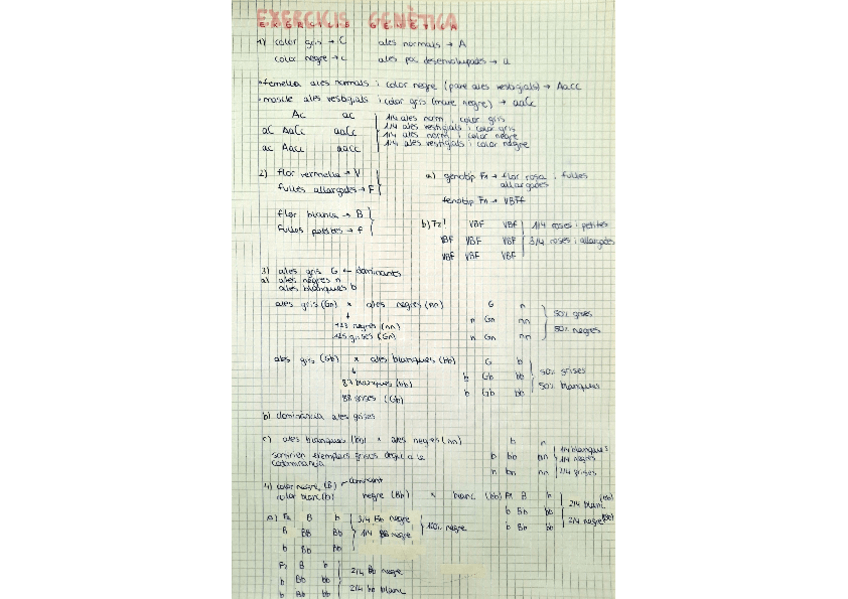 EXERCICIS GENÈTICA
EXERCICIS GENÈTICA
1) color gris → C ales normals → A
color negre → c ales poc desenvolupades → a
• femella ales normals i color negre (pare ales vestigials) → Aacc
• mascle ales vestigials i color gris (mare negre) → aaCc
Ac ac 1/4 ales norm i color gris
aC AaCc aaCc 1/4 ales vestigials i color gris
1/4 ales norm i color negre
ac Aacc aacc 1/4 ales vestigials i color negre
2) flor vermella → V
fulles allargades → F
flor blanca → B
Fulles petites → f
a) genotip F1 → flor rosa i fulles
allargades
fenotip F1 → VBFf
b) F2! VBF VBF 1/4 roses i petites
VBF VBF VBF 3/4 roses i allargades
VBF VBF VBF
3) ales gris G ← dominants
a) ales negres n
ales blanques b
ales gris (Gn) x ales negres (nn) G n
negres (nn) n Gn nn 50% grises
grises (Gn) n Gn nn 50% negres
ales gris (Gb) x ales blanques (bb) G b
blanques (bb) b Gb bb 50% grises
88 grises (Gb) b Gb bb 50% blanques
b) dominància ales grises
c) ales blanques (bb) x ales negres (nn) b n
sortirien exemplars grisos degut a la b bb bn 1/4 blanques
codominància 1/4 negres
n bn nn 2/4 grises
4) color negre (B) → dominant
color blanc (b) negre (Bb) x blanc (bb) F1 B b
b Bb bb 2/4 blanc (bb)
b Bb bb 2/4 negre (Bb)
a) F2 B b 3/4 Bb negre
B BB Bb 1/4 BB negre 100% negre
b Bb Bb
F2 B b
b Bb bb 2/4 Bb negre
b Bb bb 2/4 bb blanc